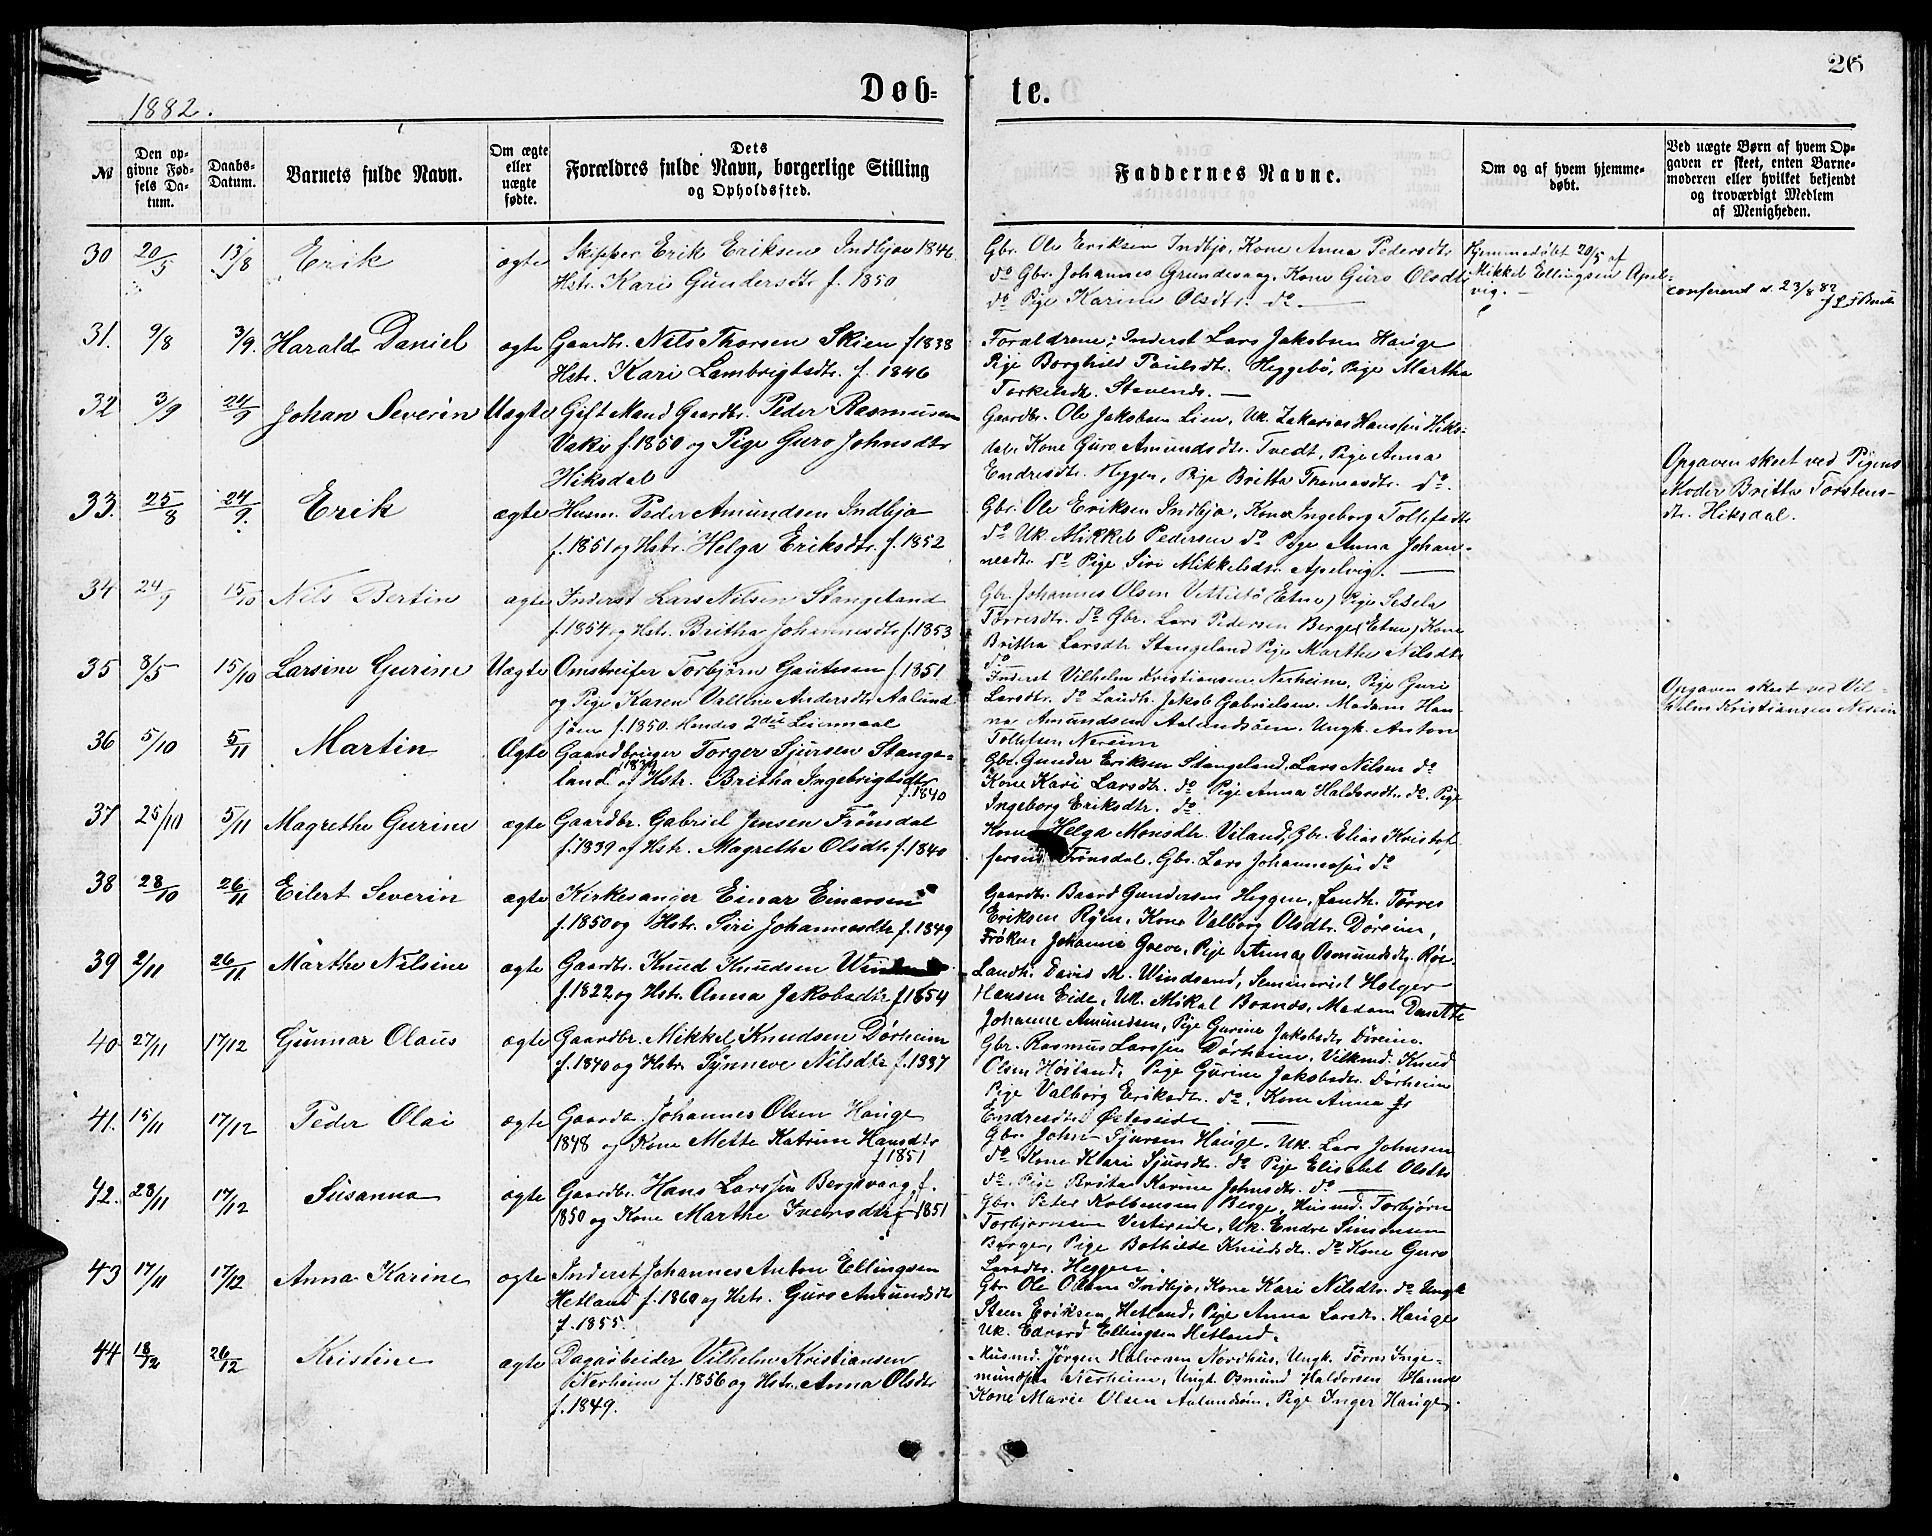 26
Døb-
te.
1882.
№
Den op-
givne Fød-
sels Da-
tum.
Daabs-
Datum.
Barnets fulde Navn.
Om ægte
eller
uægte
fødte.
Dets
Forældres fulde Navn, borgerlige Stilling
og Opholdssted.
Faddernes Navne.
Om og af hvem hjemme-
døbt.
Ved uægte Børn af hvem Op-
gaven er skeet, enten Barne-
moderen eller hvilket bekjendt
og troværdigt Medlem
af Menigheden.
30 20/5 13/8 Erik ægte Skipper Erik Eriksen Indbjo 1846
Hstr. Kari Gundersdtr f. 1850
Gbr. Ole Eriksen Indbjo, Kone Anna Pedersdtr
do Gbr. Johannes Grundevaag, Kone Guro Olsdtr
do Pige Karine Olsdtr. do. —
Hjemmedøbt 20/5 af
Mikkel Ellingsen Apel-
vig. —
conferend d. 23/8 82
31. 9/8 3/9. Harald Daniel ægte Gaardbr. Nils Thorsen Skien f 1838
Hstr. Kari Lambrigtsdtr. f. 1846
Forældrene; Inderst Lars Jakobsen Hauge
Pige Borghild Paulsdtr. Heggebö, Pige Martha
Torkelsdtr. Stavends. —
32 3/9 24/9 Johan Severin Uægte Gift Mand Gaardbr. Peder Rasmusen
Vake f. 1850 og Pige Guro Johnsdtr
Hiksdal
Gaardbr. Ole Jakobsen Lien, Uk. Zakarias Hanssen Hiks-
dal Kone Guro Amundsdtr. Tvedt, Pige Anna
Endresdtr. Heggen, Pige Britta Thomasdtr. do.
Opgaven skeet ved Pigens
Moder Britta Torstens-
dtr. Hiksdal.
33. 25/8 24/9. Erik ægte Husm. Peder Amundsen Indbjo
f. 1851 og Hstr. Helga Eriksdtr. f. 1852
Gbr. Ole Eriksen Indbjo, Kone Ingeborg Tollefsdtr
do Uk. Mikkel Pedersen do Pige Anna Johan-
nesdtr do Pige Siri Mikkelsdtr. Apelvig. —
34 24/9 15/10 Nils Bertin ægte Inderst Lars Nilsen Stangeland
f. 1854 og Hstr. Britha Johannesdtr f. 1853
Gbr. Johannes Olsen (Etne) Pige Sesela
Torresdtr. do Gbr. Lars Pedersen Berge (Etne) Kone
Britha Larsdtr Stangeland Pige Marthe Nilsdtr
do
35 8/5 15/10 Larsine Gurine Uægte Omstreifer Torbjørn Gautesen f 1851
og Pige Karen Valline Andersdtr Aalund
søen f. 1850. Hendes 2det Leiermaal
Inderst Vilhelm Kristiansen Nerheim, Pige Guri
Larsdtr. do Landh. Jakob Gabrielsen. Madam Han-
na Amundsen Aalundsøen. Ungk. Anton
Tollefsen Nereim
Opgaven skeet ved Vil-
helm Kristiansen Nereim
36 5/10 5/11 Martin Ægte Gaardbruger Torger Sjursen Stange-
land 1839 og Hstr. Britha Ingebrigtsdtr
f. 1840
Gbr. Gunder Eriksen Stangeland, Lars Nilsen do
Kone Kari Larsdtr. do Pige Anna Haldorsdtr. do. Pige
Ingeborg Eriksdtr. do
37 25/10 5/11 Magrethe Gurine ægte Gaardbr. Gabriel Jensen Frönsdal
f. 1839 og Hstr. Magrethe Olsdtr f. 1840
Kone Helga Monsdtr. Viland, Gbr. Elias Kristof-
fersen Frönsdal. Gbr. Lars Johannessen do
38 28/10 26/11 Eilert Severin ægte Kirkesanger Einar Einarsen
f. 1850 og Hstr. Siri Johannesdtr f. 1849
Gaardbr. Baard Gundersen Heggen, Landh. Torres
Eriksen Rÿen, Kone Valborg Olsdtr. Döreim,
Fröken Johanne Greve, Pige Anna Osmundsdtr.
39 2/11 26/11 Märthe Nilsine ægte Gaardbr. Knud Knudsen
f. 1822 og Hstr. Anna Jakobsdtr f 1854
Landh. David M. Windsand, Seminarist Holger
Hansen Eide, Uk. Mikal Bosnes, Madam Danette
Johanne Amundsen, Pige Gurine Jakobsdtr Döreim.
40 27/11 17/12 Gunnar Olaus ægte Gaardbr. Mikkel Knudsen Dörheim
f. 1840 og Hstr. Synneve Nilsdtr f. 1837
Gbr. Rasmus Larssen Dörheim. Knud
Olsen Höiland, Pige Gurine Jakobsdtr. Dörheim
Pige Valborg Eriksdtr. do. Kone Anna
Endresdtr. Österside —
41. 15/11 17/12 Peder Olai ægte Gaardbr. Johannes Olsen Hauge
1848 og Kone Mette Katrine Hansdtr
f 1851
Gbr. John Sjursen Hauge. Uk. Lars Johnsen
do Kone Kari Sjursdtr. do Pige Elisabet Olsdtr
do. Pige Brita Karine Johnsdtr. do —
42. 28/11 17/12 Susanna ægte Gaardbr. Hans Larssen Bergsvaag f.
1850 og Kone Marthe Iversdtr f 1851
Gbr. Peter Kolbensen Berge, Husmd. Torbjørn
Torbjørnsen Vestreside, Uk. Endre Simonsen
Berge, Pige Bothilde Knudsdtr. do Kone Guro
Larsdtr. Heggen.
43 17/11 17/12 Anna Karine ægte Inderst Johannes Anton Ellingsen
Hetland f. 1860 og Hstr. Guro Amundsdtr
f. 1855.
Gbr. Ole Olsen Indbjo, Kone Kari Nilsdtr. do Ungk
Steen Eriksen Hetland, Pige Anna Larsdtr. Hauge
Uk. Edvard Ellingsen Hetland.
44 18/2 26/12 Kristine ægte Dagarbeider Vilhelm Kristiansen
Nerheim f. 1856 og Hstr. Anna Olsdtr
f. 1849.
Husmd. Jörgen Halvorsen Nordhus, Ungk. Torres Inge-
mundsen Nerheim, Ungk. Osmund Haldorsen
Kone Marie Olsen Aalundsøen, Pige Inger Hauge.